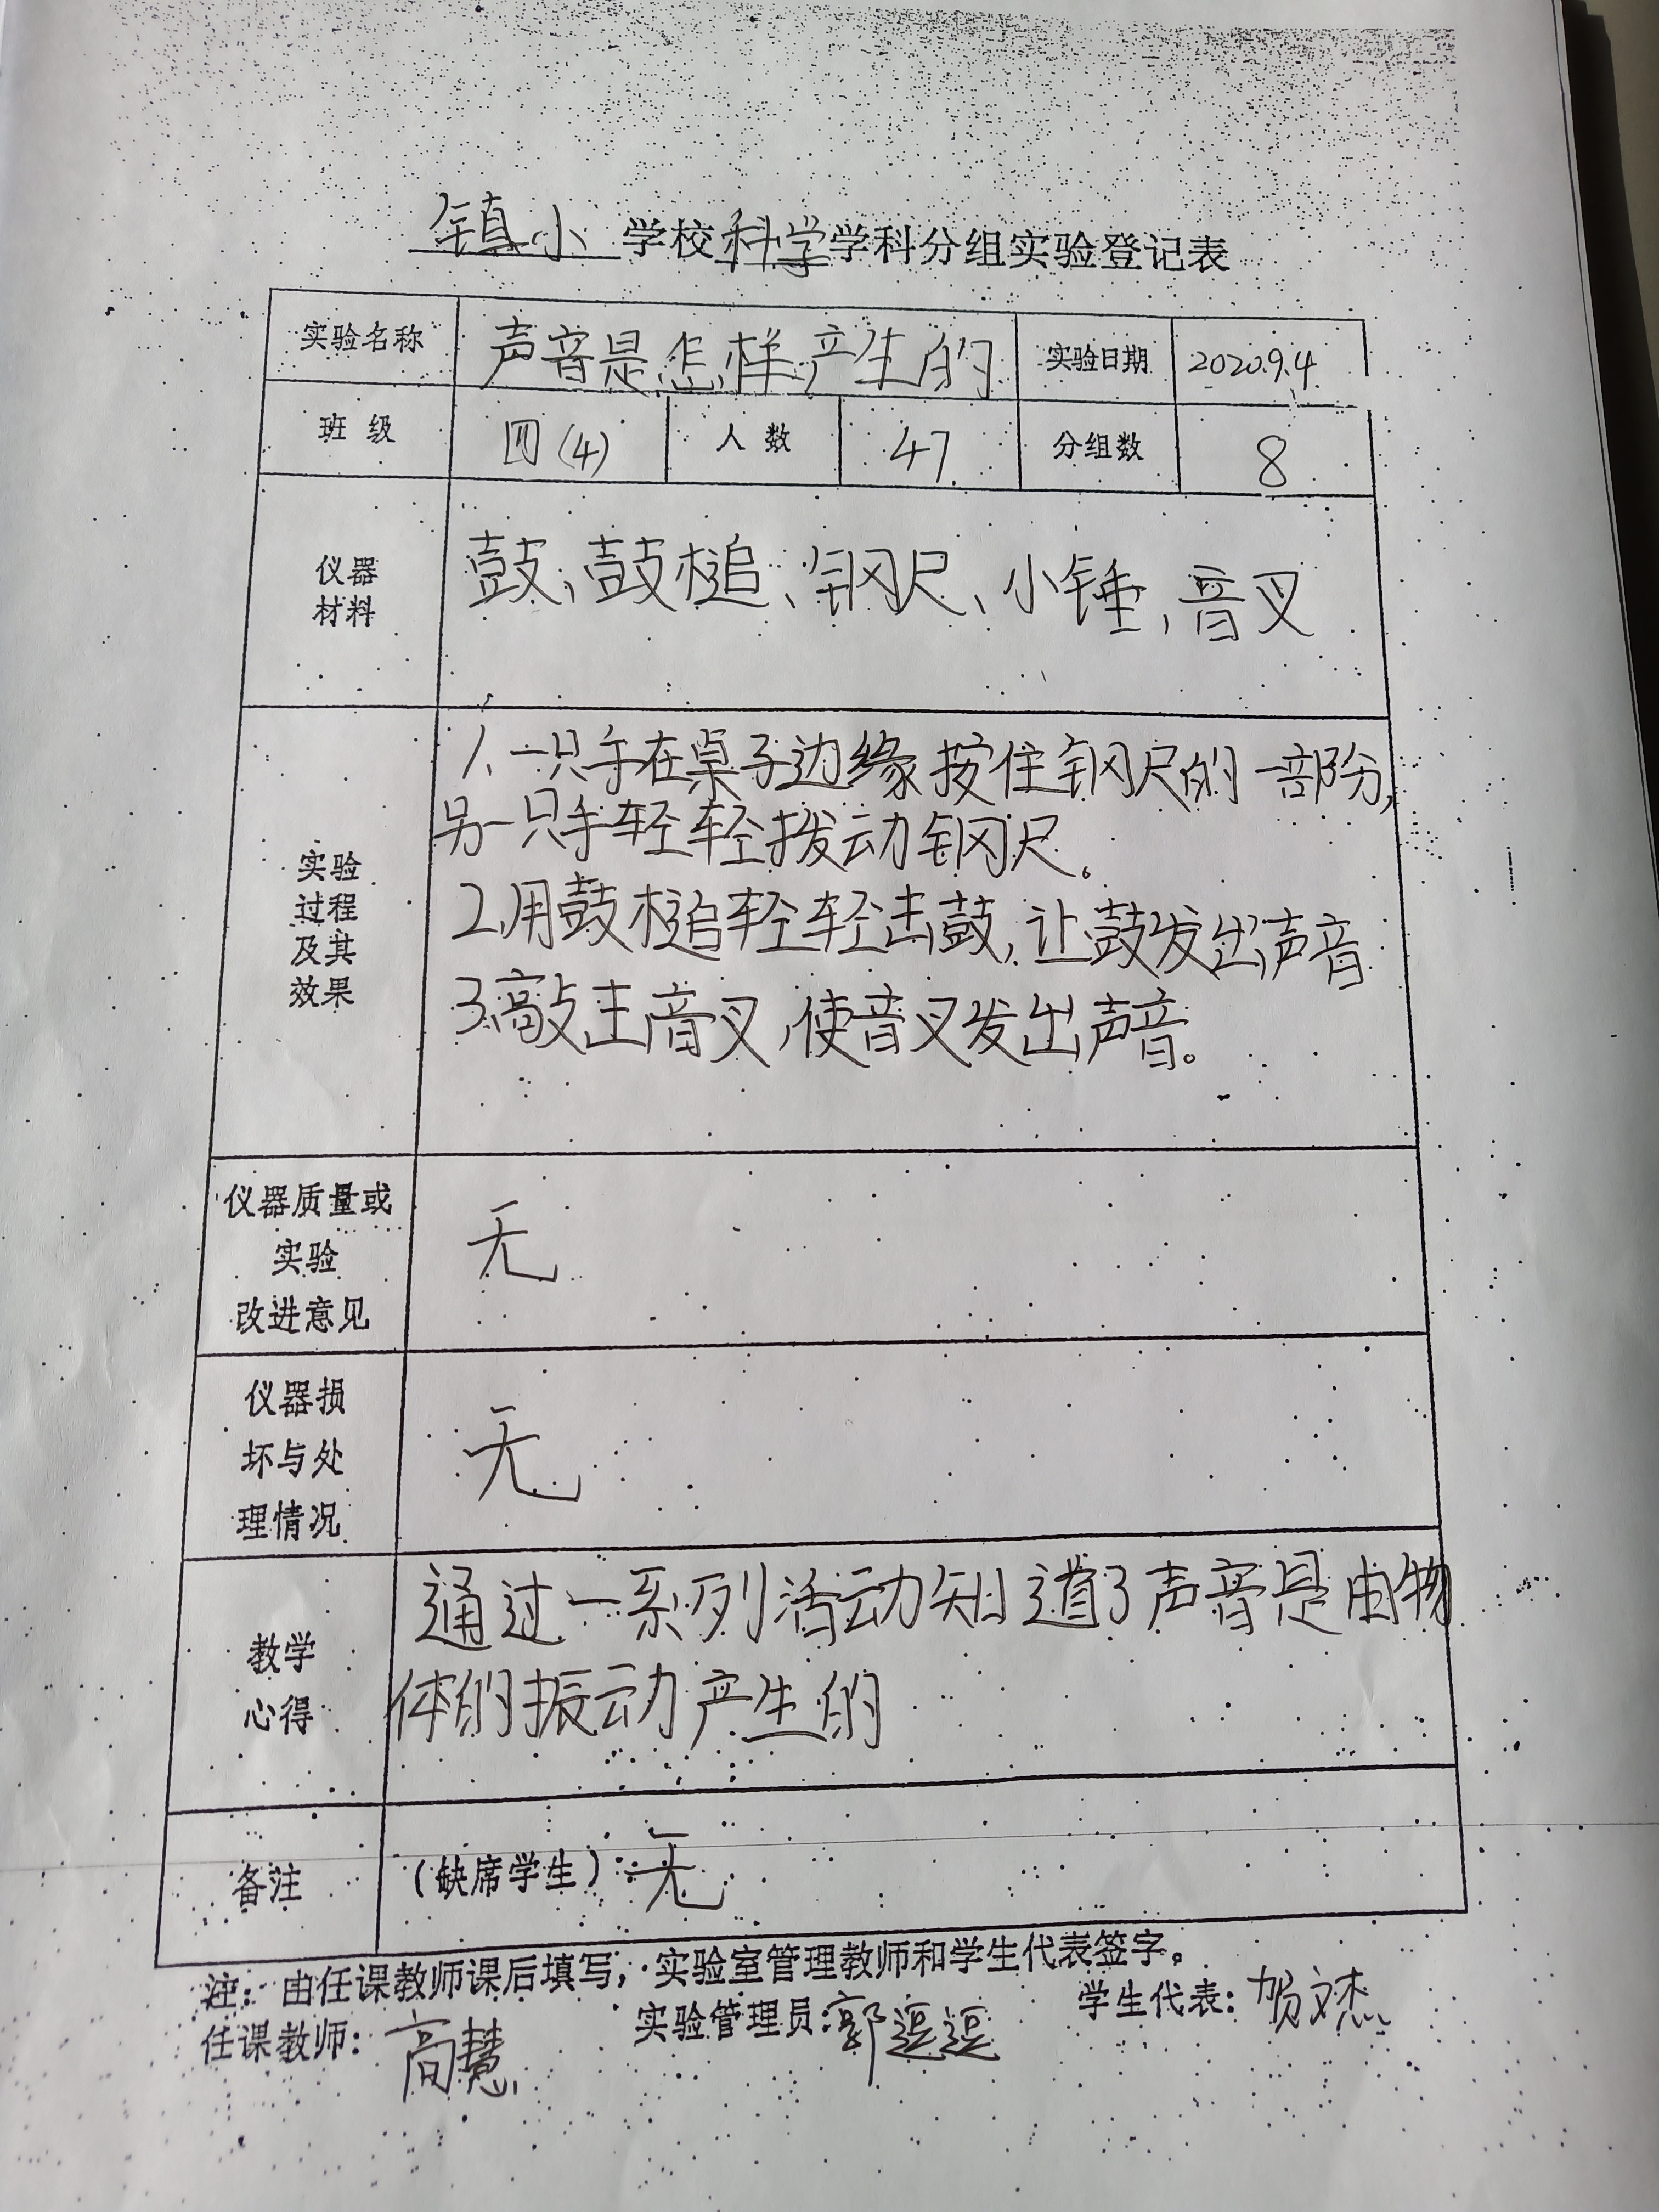 镇小学校科学学科分组实验登记表
实验名称 声音是怎样产生的 实验日期 2020.9.4
班级 四(4) 人数 47 分组数 8
仪器
材料
鼓、鼓槌、钢尺、小锤、音叉
实验
过程
及其
效果
1、一只手在桌子边缘按住钢尺的一部分,
另一只手轻轻拨动钢尺。
2、用鼓槌轻轻击鼓,让鼓发出声音
3、敲击音叉,使音叉发出声音。
仪器质量或
实验
改进意见
无
仪器损
坏与处
理情况
无
教学
心得
通过一系列活动知道了声音是由物
体的振动产生的
备注 (缺席学生):无
注:由任课教师课后填写,实验室管理教师和学生代表签字。
任课教师:高慧 实验管理员:郭逗逗 学生代表:贺文杰